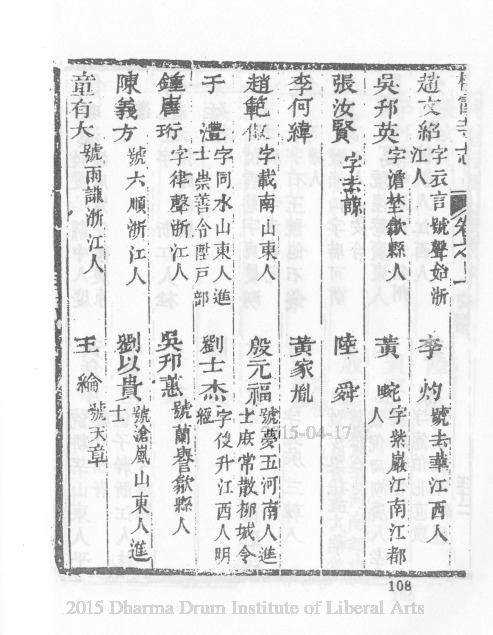 棲霞寺志 卷之一
趙文䎖 字云言號聲始浙江人 李灼 號去華江西人
吳邦英 字濳埜歙縣人 黃 字紫巖江南江都人
張汝賢 字去諒 陸舜
李何緯 黃家胤
趙範 字載南山東人 殷元福 號夢五河南人進士麻常散柳城令
于澧 字同水山東人進士崇善令陞戶部 劉士杰 字俊升江西人明經
鍾唐珩 字律聲浙江人 吳邦蕙 號蘭譽歙縣人
陳義方 號六順浙江人 劉以貴 號滄嵐山東人進士
童有大 號雨謙浙江人 王綸 號天章
15-04-17
108
2015 Dharma Drum Institute of Liberal Arts